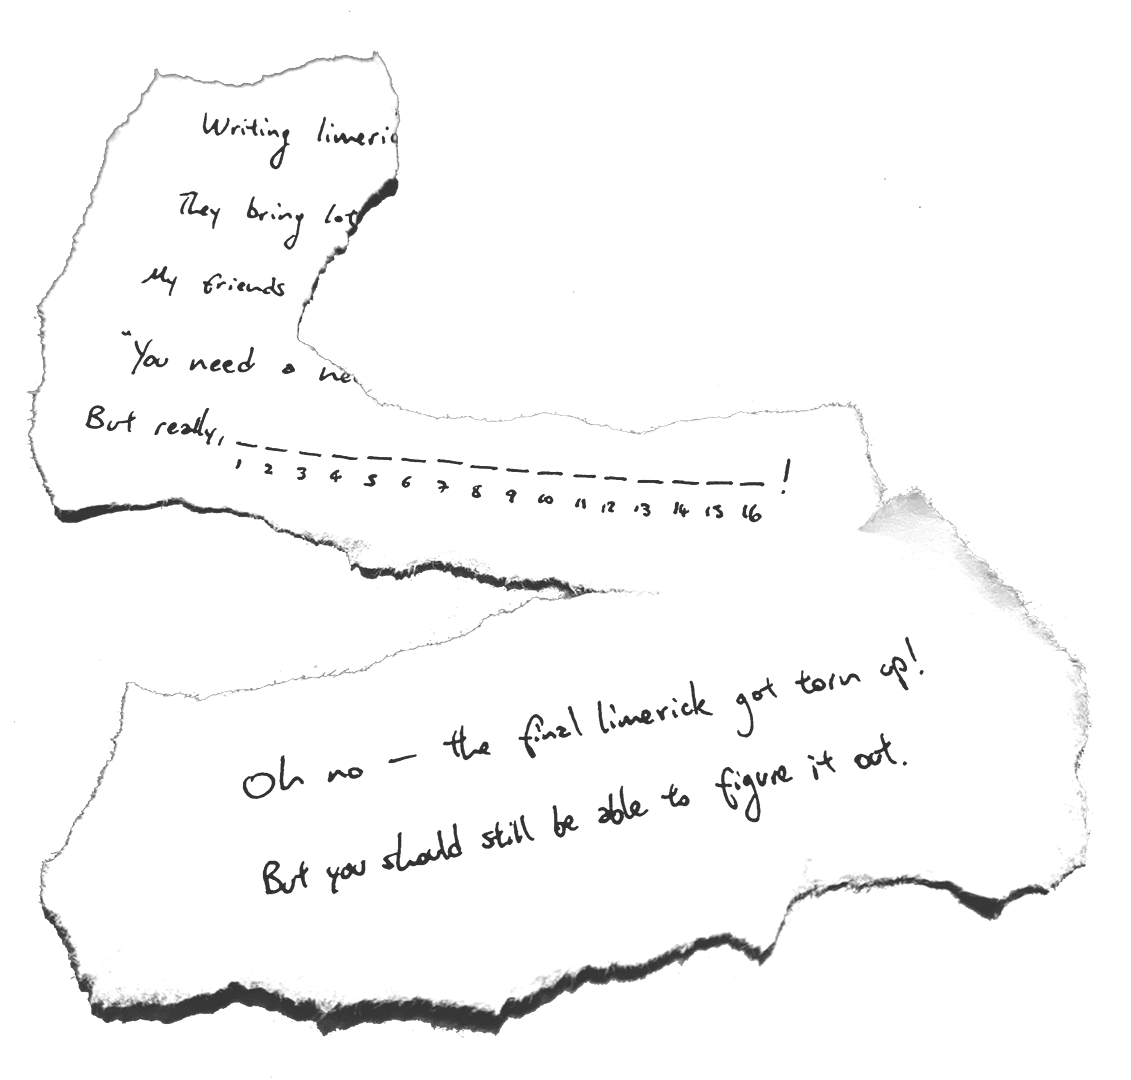 Writing limeric
They bring lot
My friends
"You need a ne
But really, _ _ _ _ _ _ _ _ _ _ _ _ _ _ _ _ !
1 2 3 4 5 6 7 8 9 10 11 12 13 14 15 16
Oh no — the final limerick got torn up!
But you should still be able to figure it out.